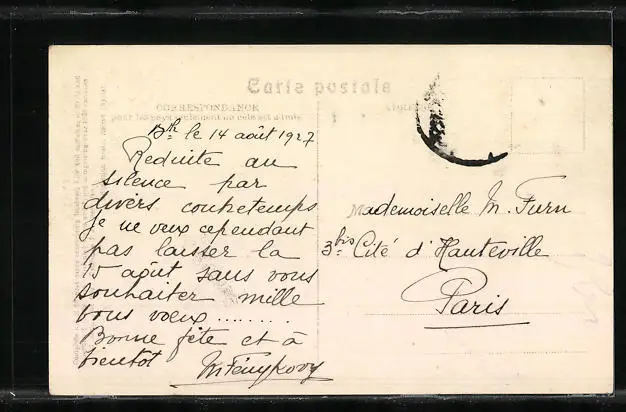 Carte postale
CORRESPONDANCE
le 14 août 1927
Réduite au
silence par
divers contretemps
je ne veux cependant
pas laisser la
15 août sans vous
souhaiter mille
bons vœux ........
Bonne fête et à
bientôt
Mademoiselle M. Furn
3bis Cité d'Hauteville
Paris